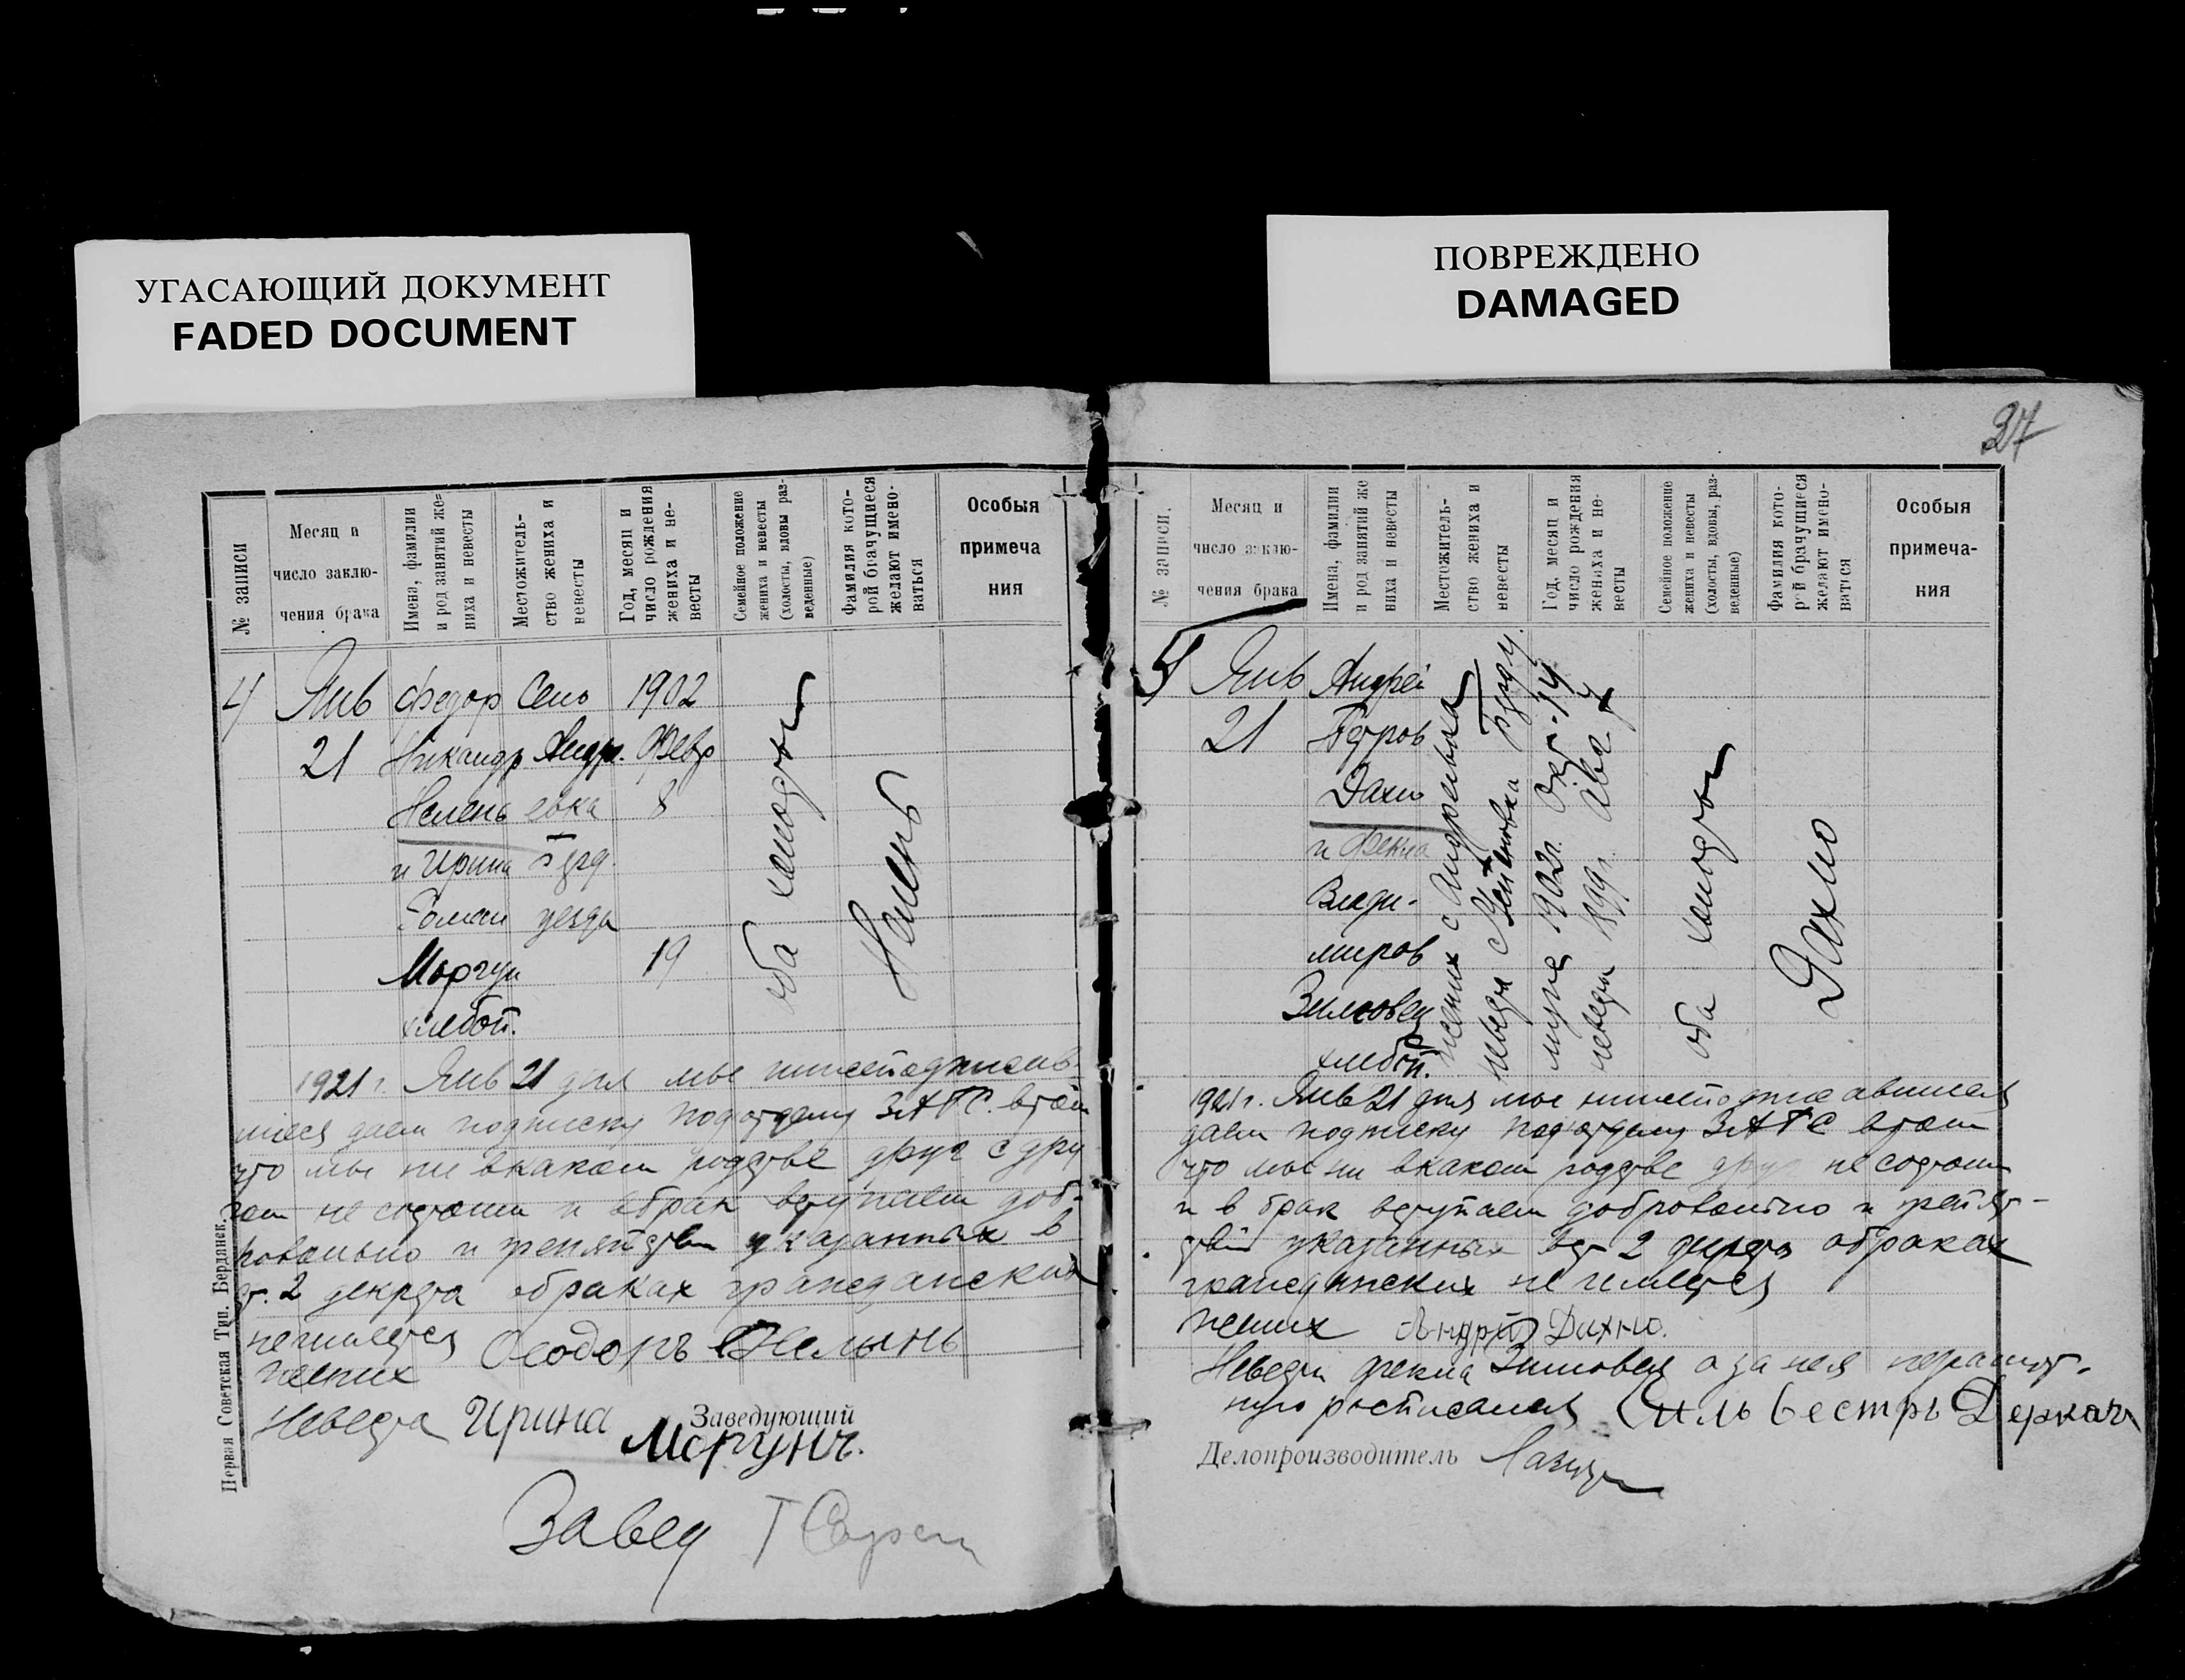 УГАСАЮЩИЙ ДОКУМЕНТ
FADED DOCUMENT
ПОВРЕЖДЕНО
DAMAGED
№ записи
Месяц и
число заклю-
чения брака
Имена, фамилии
и род занятий же=
ниха и невесты
Местожитель-
ство жениха и
невесты
Год, месяц и
число рождения
жениха и не-
весты
Семейное положение
жениха и невесты
(холосты, вдовы раз-
веденные)
Фамилия кото-
рой брачущиеся
желают имено-
ваться
Особыя
примеча
ния
4
Янв
21
Федор
Никандр
Нелень
и Ирина
Роман
Моргун
хлебоп.
Село
Андр.
евка
уезда
1902
Февр
8
19
оба холосты
Нелень
1921 г. Янв 21 дня мы нижеподписав
шиеся даем подписку подотделу ЗАГС. втом
что мы ни вкаком родстве друг с дру
гом не состоим и вбрак вступаем доб-
ровольно и препятствий указанных в
ст. 2 декрета обраках гражданских
неимеется
жених Ѳеодоръ Нелынь
Невеста Ирина Моргунъ.
Заведующий
Завед
Первая Советская Тип. Бердянск.
37
№ записи.
Месяц и
число заклю-
чения брака
Имена, фамилии
и род занятий же
ниха и невесты
Местожитель-
ство жениха и
невесты
Год, месяц и
число рождения
жениха и не-
весты
Семейное положение
жениха и невесты
(холосты, вдовы, раз-
веденные)
Фамилия кото-
рой брачущиеся
желают имено-
ваться
Особыя
примеча-
ния
5
Янв
21
Андрей
Петров
Дахно
и Фекла
Влади-
миров
Зимовец
хлебоп.
жених с Андреевка
невеста с
1902г. Окт-14
невеста 1899г.
оба холосты
Дахно
1921г. Янв 21 дня мы нижеподписавшиеся
даем подписку подотделу ЗАГС втом
что мы ни вкаком родстве друг не состоим
и в брак вступаем добровольно и препят-
ствий указанных вст 2 декрета обраках
гражданских не имеется
жених Андрій Дахно.
Невеста Фекла Зимовец а за нея неграмот.
ную росписался Сильвестръ Деркачъ
Делопроизводитель